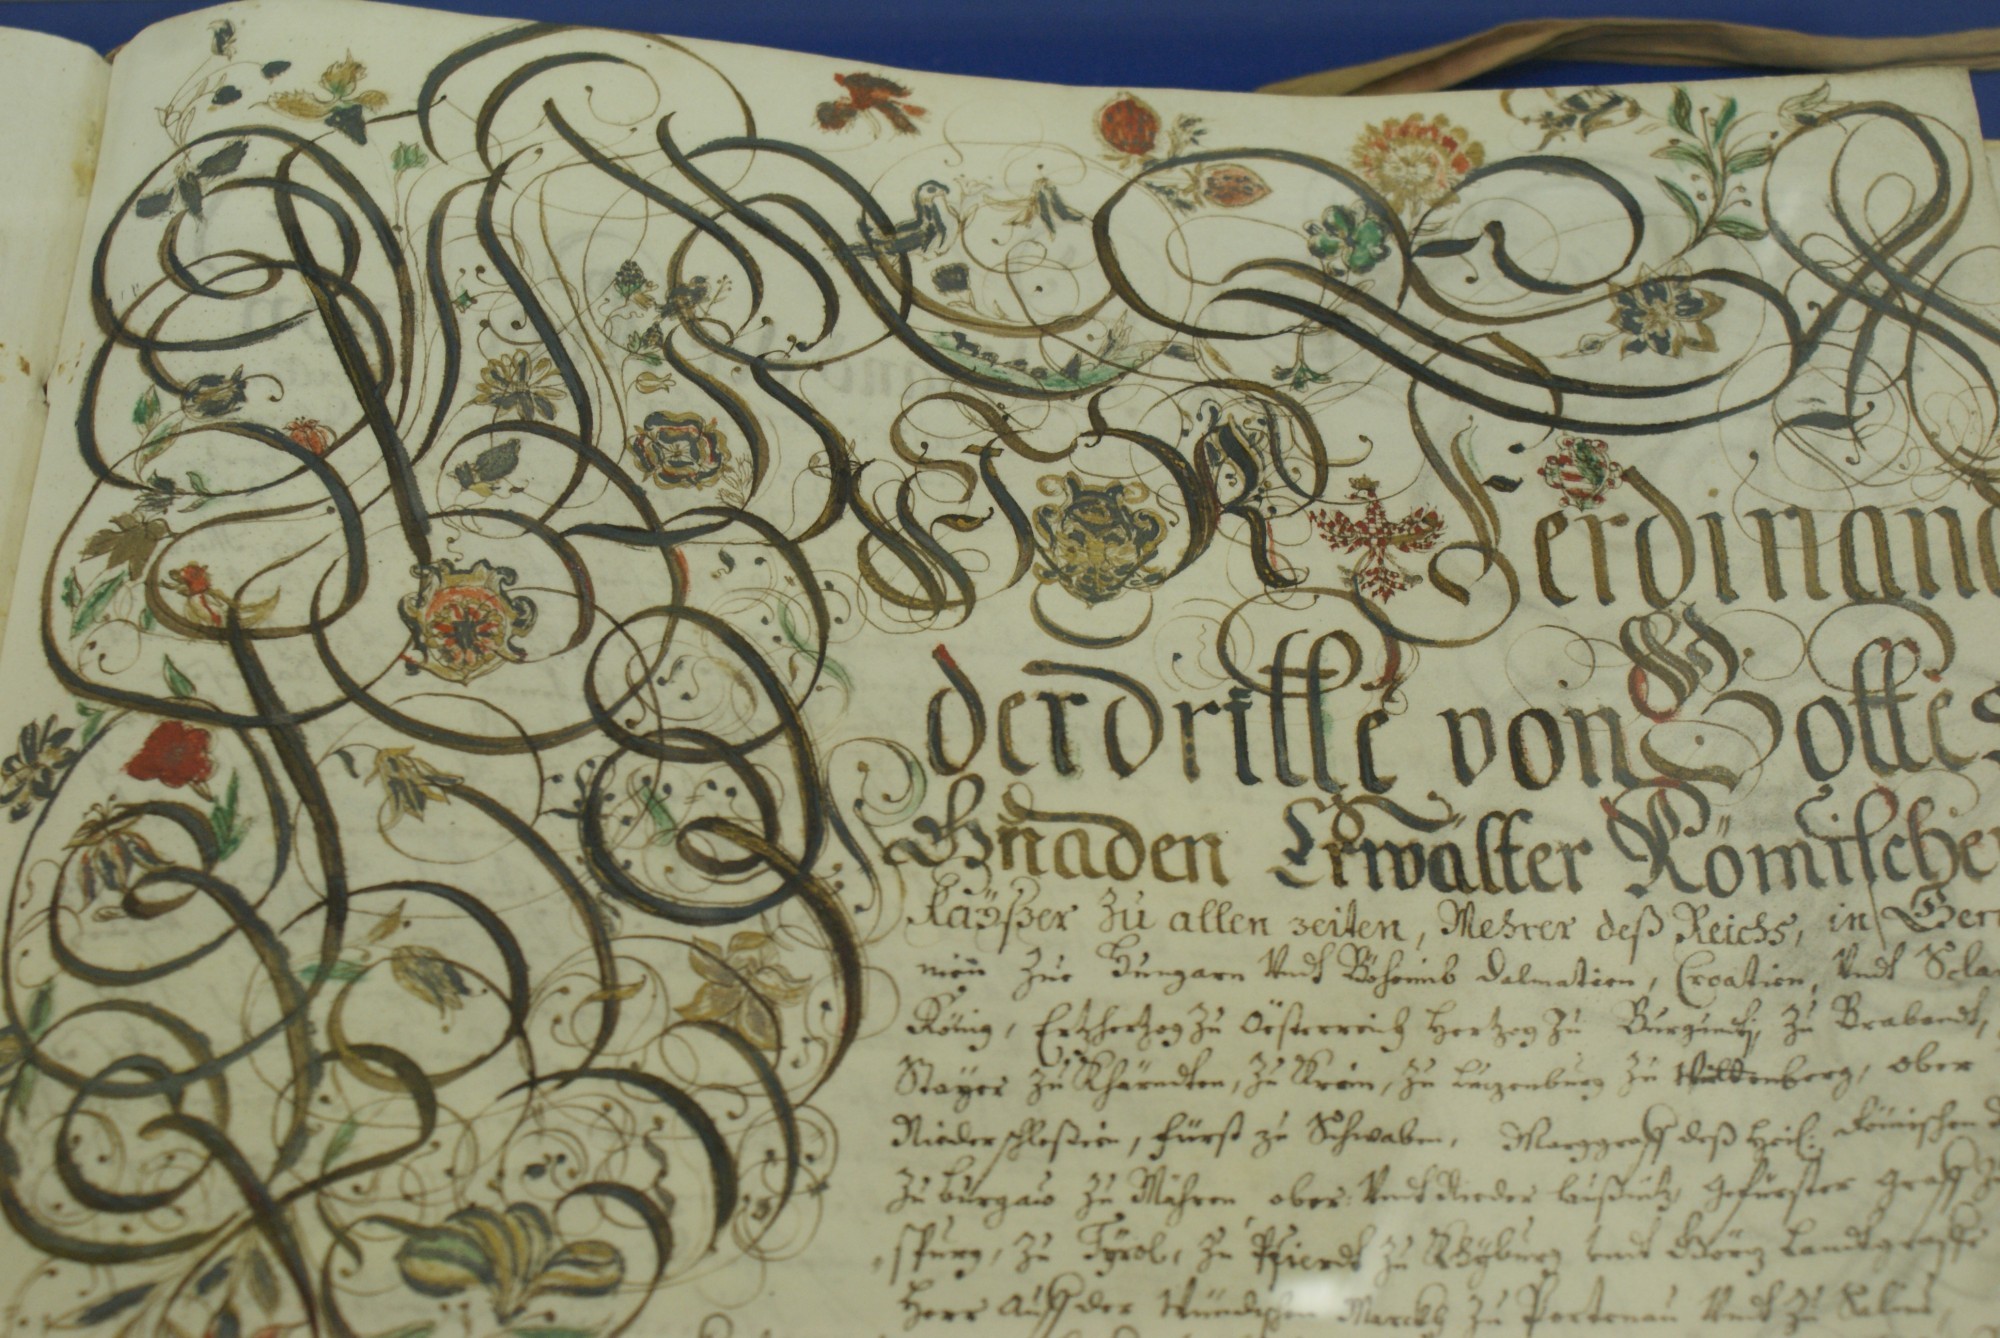 WIR Ferdinand
der dritte von Gottes
Gnaden Erwälter Römischer
Kaÿßer zu allen zeiten, Mehrer deß Reichs, in Ger
nien zue Hungarn Vndt Böheimb Dalmatien, Croatien, Vndt Scla
König, Ertzhertzog zu Oesterreich Hertzog zu Burgundt, zu Brabandt,
Steyer zu Khärndten, zu Krain, zu Lützenburg zu Württenberg, ober
Nieder schleßien, Fürst zu Schwaben, Marggraff deß Heil: Römischen
zu Burgaw zu Mähren ober: Vndt Nieder laußnitz, gefürster Graff zu
spurg, zu Tÿrol, zu Pfierdt zu Khÿburg vndt Görz Landtgraff
Herr Auff der Windischen Marckh zu Portenau Vndt zu Salins,